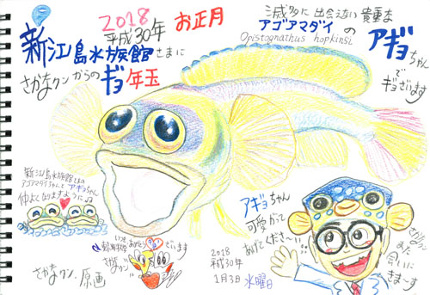 2018
平成30年
お正月
新江ノ島水族館さまに
さかなクンからの
ギョ年玉
滅多に出会えない貴重な
アゴアマダイの
Opistognathus hopkinsi
アギョちゃん
でギョざいます
新江ノ島水族館
アゴアマダイちゃんとアギョちゃん
仲良く
さかなクン原画
アギョちゃん
可愛がって
あげてくださーい
2018
平成30年
1月3日 水曜日
さかなクン
また
会いに
きまーす